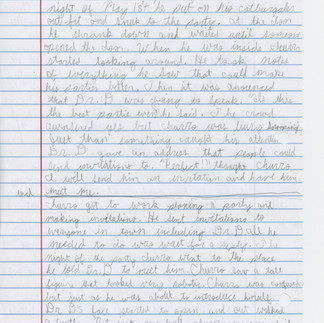 night of May 1st he put on his catburgaler
outfit and snuk to the party. At the door
he shrank down and waited untill someone
opened the door. When he was inside churro
started looking around. He took notes
of everything he saw that could make
his parties better. Then it was announced
that Dr. D was going to speak. "Is this
the best partie ever" he said. The crowd
awnsered yes but churro was busy
Just than something caught his attention
Dr. D gave an address that people could
send invitations to. "Perfect" thought Churro
I will send him an invitation and have him
meet me.
Churro got to work planing a party and
making invitations. He sent invitations to
everyone in town including Dr. D all he
needed to do was wait for a reply. The
night of the party churro went to the place
he told Dr. D to meet him. Churro saw a tall
figure that looked very robotic. Churro was confused
but just as he was about to introduce himself
Dr. D's face started to open and out walked